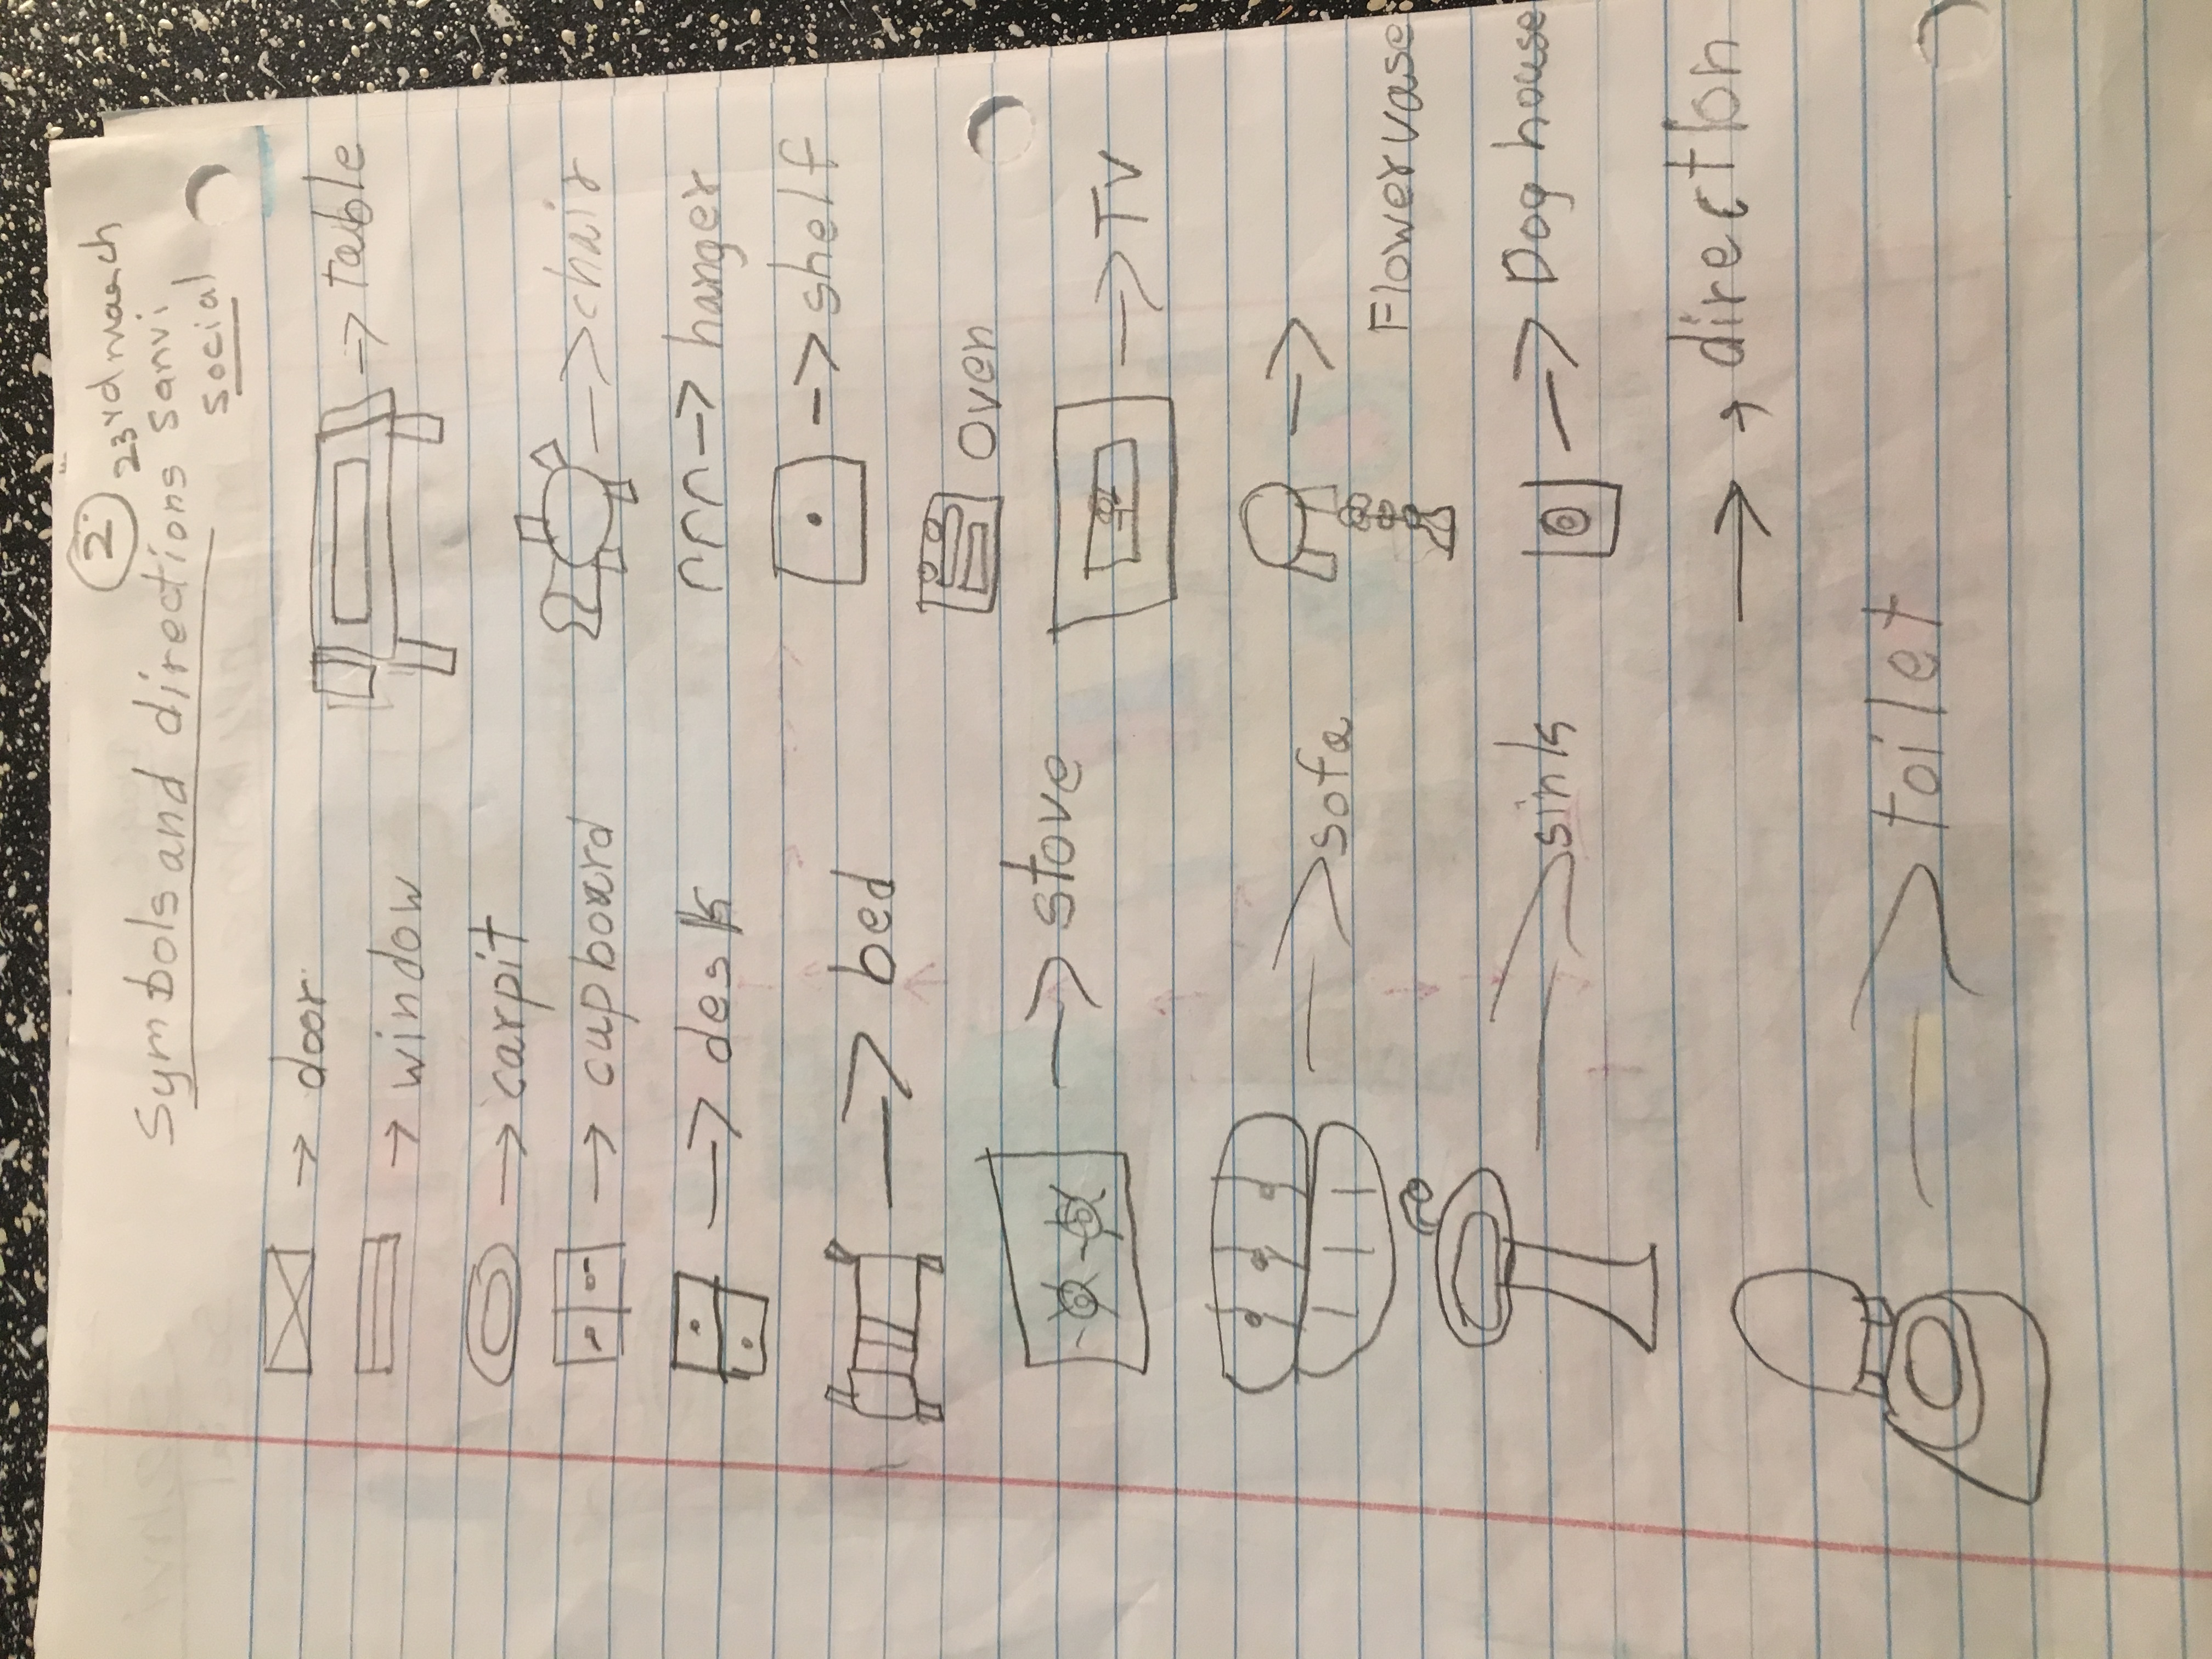 2 23rd march
Symbols and directions sanvi
social
→ door
→ window
→ carpit
→ cupboard
→ desk
→ bed
→ stove
→ sofa
→ sink
→ toilet
→ table
→ chair
→ hanger
→ shelf
oven
→ TV
→
Flowervase
→ Dog house
→ , direction